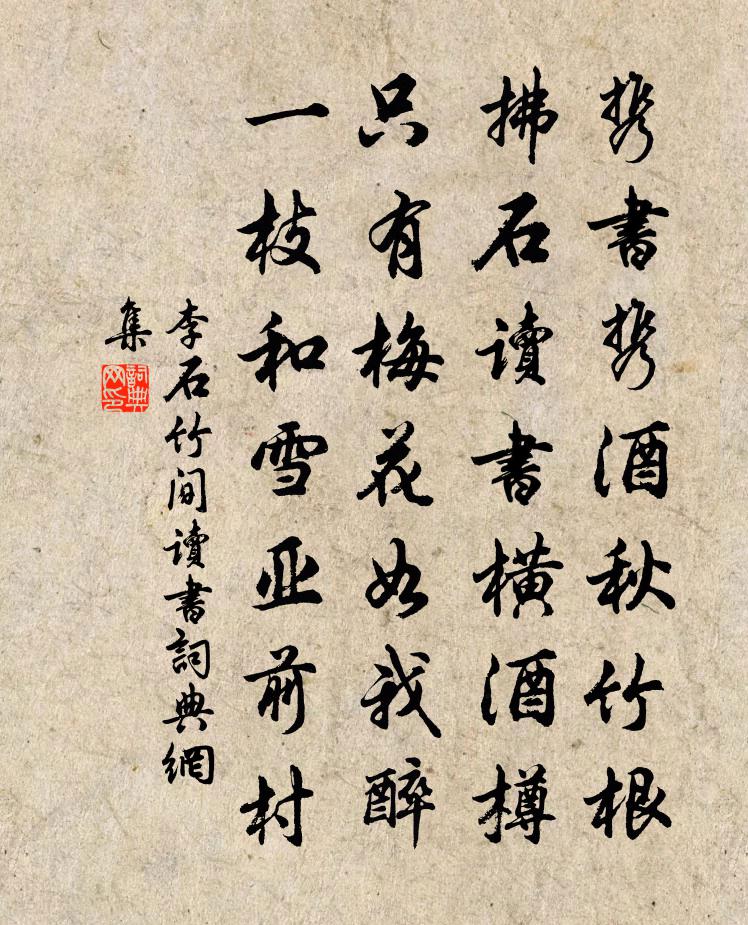 携书携酒秋竹根
拂石讀书橫酒樽
只有梅花如我醉
一枝和雪亚前村
李石竹间讀书詞典網
集
詞典网印